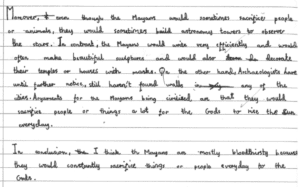 Moreover, even though the Mayans would sometimes sacrifice people
or animals, they would sometimes build astronomy towers to observe
the stars. In contrast, the Mayans would write very efficiently and would
often make beautiful sculptures and would also decorate
their temples or houses with masks. On the other hand, Archaeologists have
until further notice, still haven't found walls in any of the
cities. Arguments for the Mayans being civilised, are that they would
sacrifice people or things a lot for the Gods to rise the Sun
everyday.
In conclusion, I think the Mayans are mostly bloodthirsty because
they would constantly sacrifice things or people everyday to the
Gods.